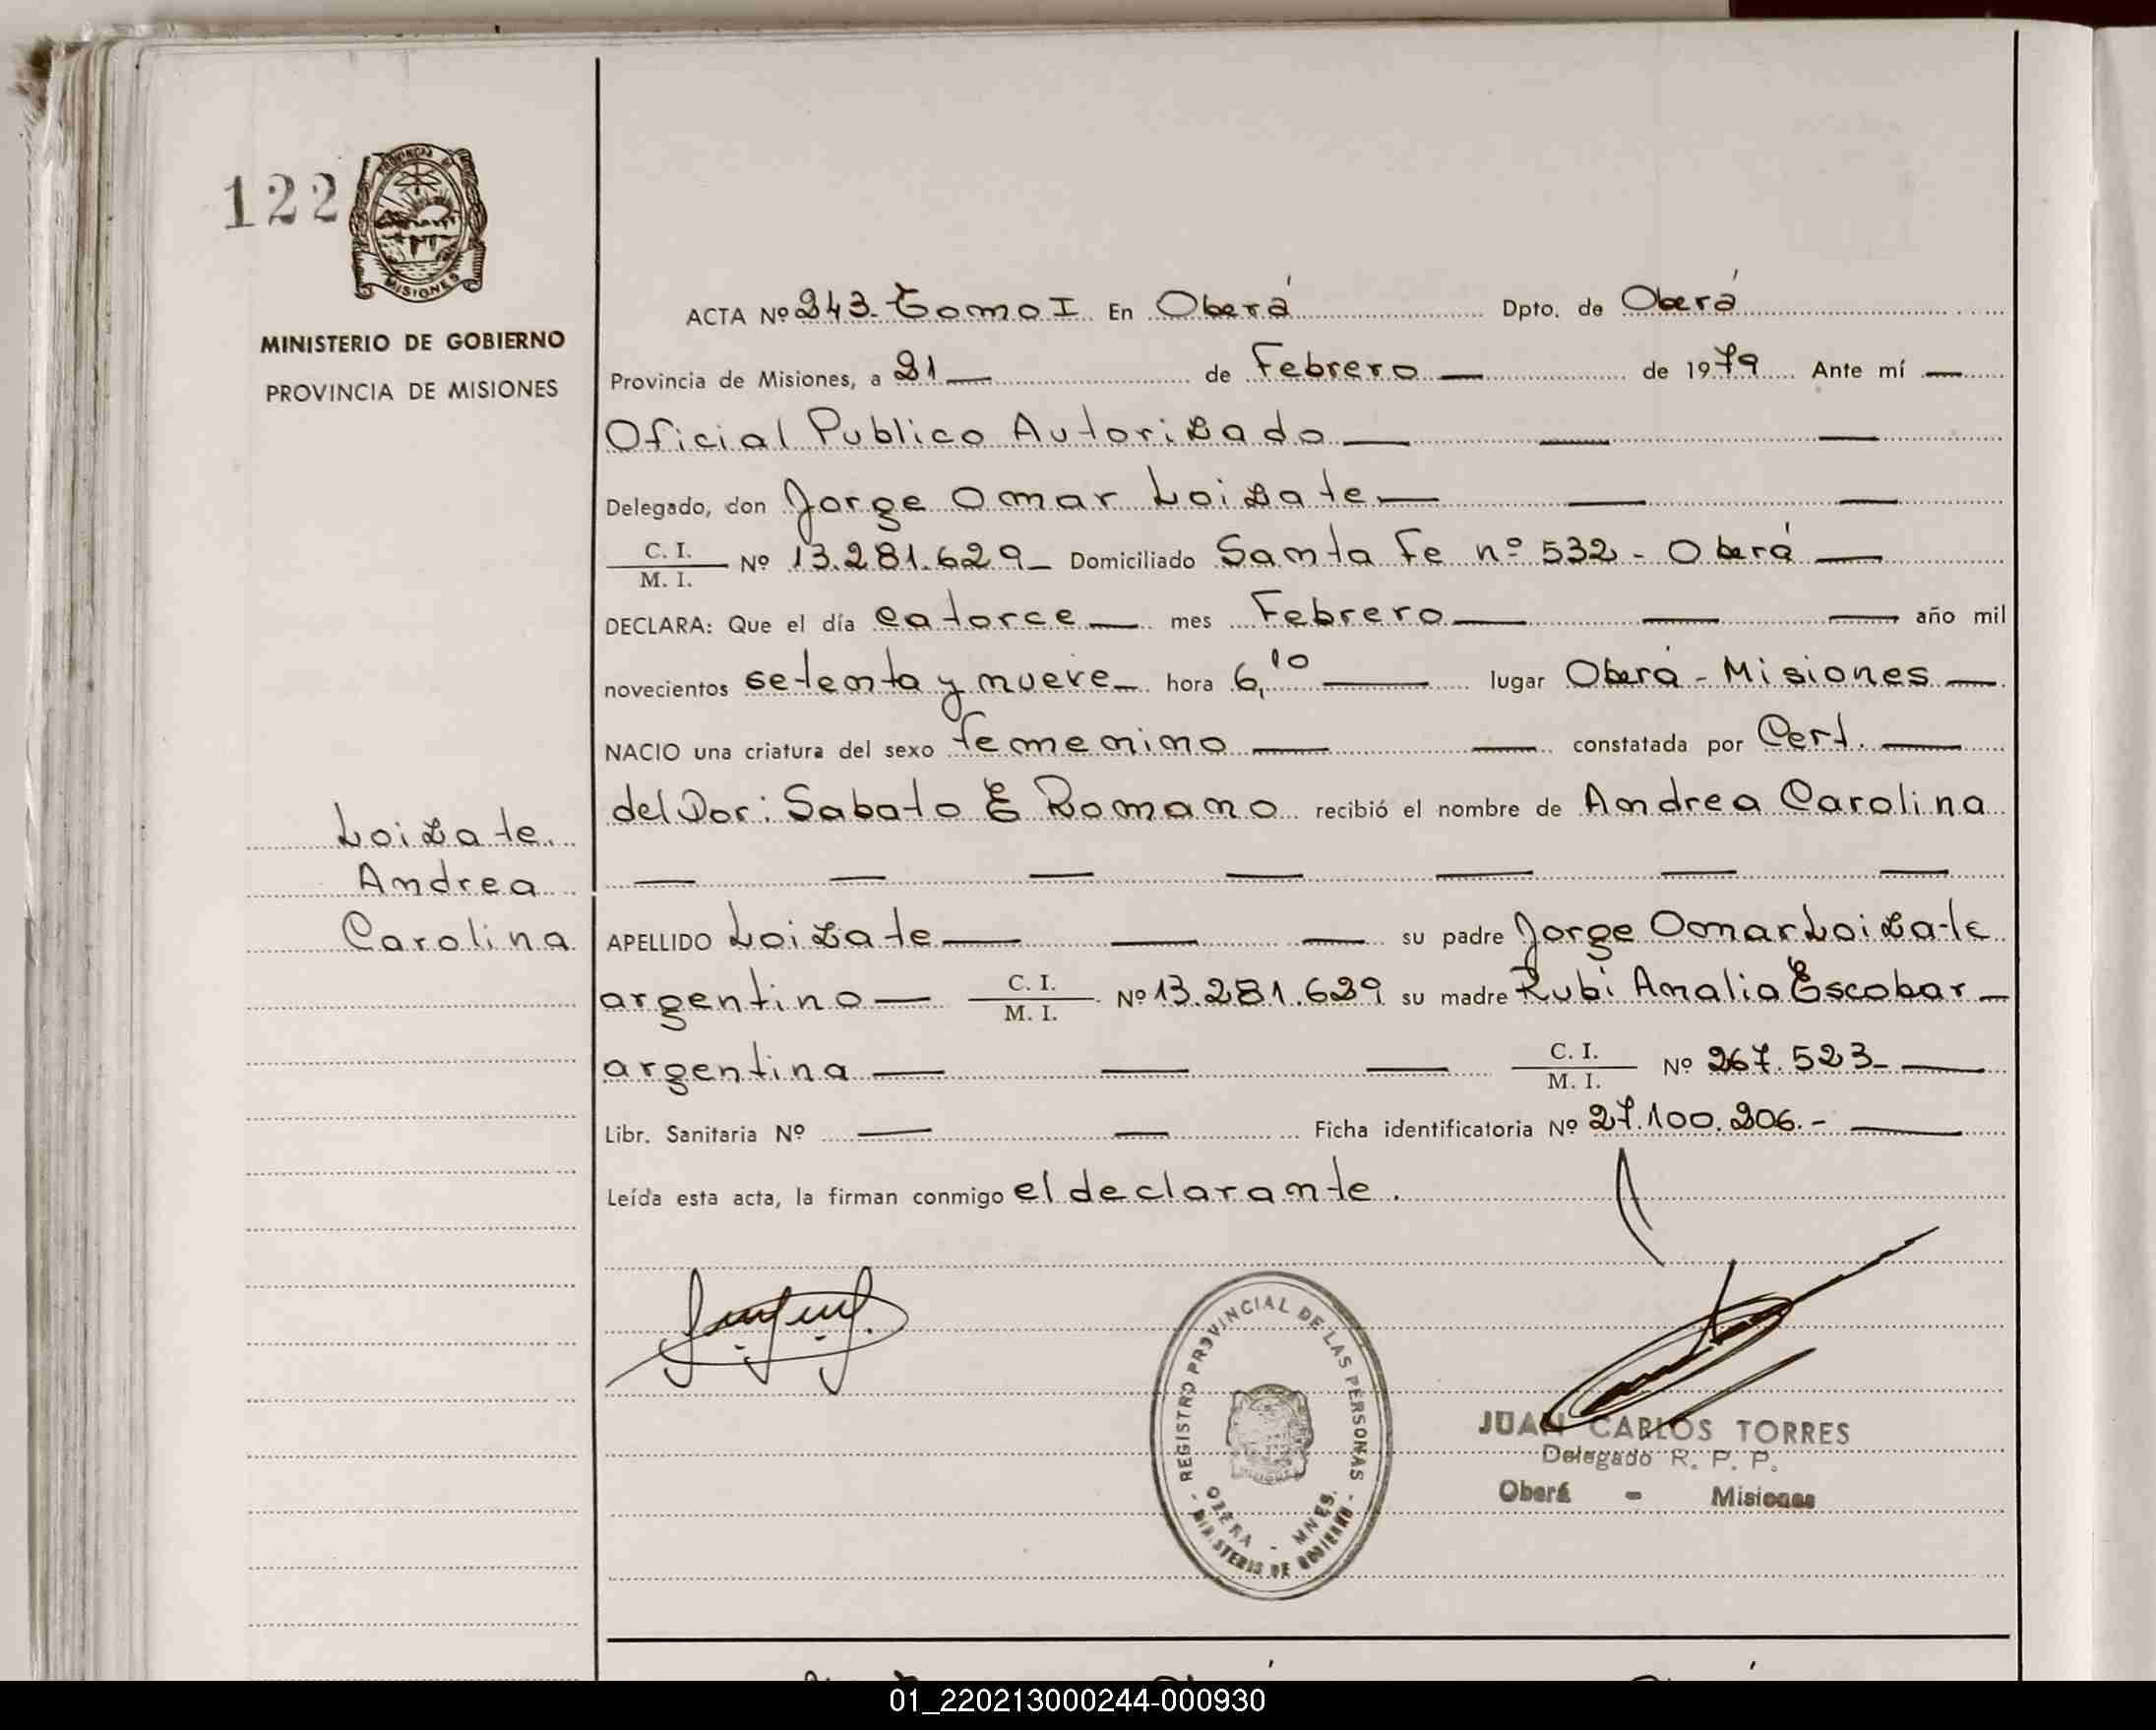 122
PROVINCIA DE
MISIONES
MINISTERIO DE GOBIERNO
PROVINCIA DE MISIONES
ACTA Nº 243- Tomo I En Oberá Dpto. de Oberá
Provincia de Misiones, a 21 — de Febrero — de 1979 Ante mí —
Oficial Publico Autorizado — — —
Delegado, don Jorge Omar Loizate — — —
C. I.
M. I. Nº 13.281.629 — Domiciliado Santa Fe nº 532 - Oberá —
DECLARA: Que el día catorce — mes Febrero — — — año mil
novecientos setenta y nueve — hora 6,10 — lugar Oberá - Misiones —
NACIO una criatura del sexo femenino — — constatada por Cert. —
del Dor: Sabato E Romano recibió el nombre de Andrea Carolina
— — — — — — —
Loizate
Andrea
Carolina
APELLIDO Loizate — — — su padre Jorge Omar Loizate
argentino — C. I.
M. I. Nº 13.281.629 su madre Rubi Amalia Escobar —
argentina — — — C. I.
M. I. Nº 267.523 - —
Libr. Sanitaria Nº — — Ficha identificatoria Nº 27.100.206.- —
Leída esta acta, la firman conmigo el declarante.
REGISTRO PROVINCIAL DE LAS PERSONAS
OBERA - MNES.
MINISTERIO DE GOBIERNO
JUAN CARLOS TORRES
Delegado R. P. P.
Oberá - Misiones
01_220213000244-000930